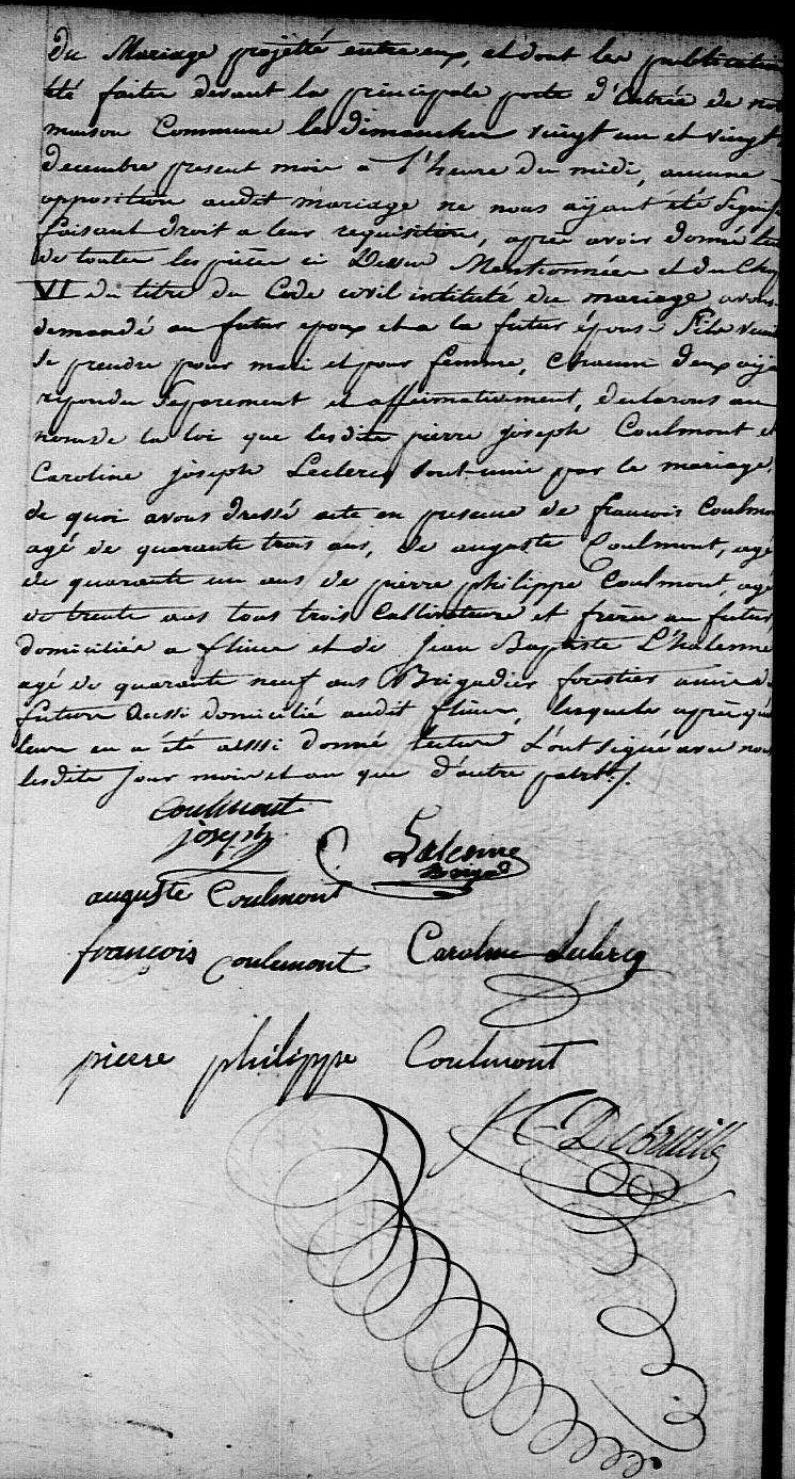 du Mariage projetté entre eux, et dont les publications
été faites devant la principale porte d'Entrée de no
maison Commune les dimanches vingt un et vingt
decembre present mois a l'heure du midi, aucune
opposition audit mariage ne nous ayant été Signif
faisant droit a leur requisition, après avoir donné lec
de toutes les pièces ci Dessus Mentionnées et du Chap
VI du titre du Code civil intitulé du mariage, avons
demandé au futur epoux et a la futur épouse S'ils veul
se prendre pour mari et pour femme, chacun d'eux aya
repondu Séparement et affirmativement, declarons au
nom de la loi que lesdits pierre joseph Coulmont et
Caroline joseph Leclercq sont unis par le mariage,
de quoi avons dressé acte en presence de francois Coulmon
agé de quarante trois ans, de auguste Coulmont, agé
de quarante un ans de pierre philippe Coulmont, agé
de trente ans tous trois Cultivateurs et frères au futur,
domiciliés a flines et de Jean Baptiste L'halenne
agé de quarante neuf ans Brigadier forestier amis d
future aussi domicilié audit flines, lesquels après qu
leur en a été aussi donné lecture L'ont signé avec nous
lesdits jour mois et an que d'autre part ./.
Coulmont
joseph
Lalenne
auguste Coulmont
françois coulemont Caroline Leclercq
pierre philippe Coulmont